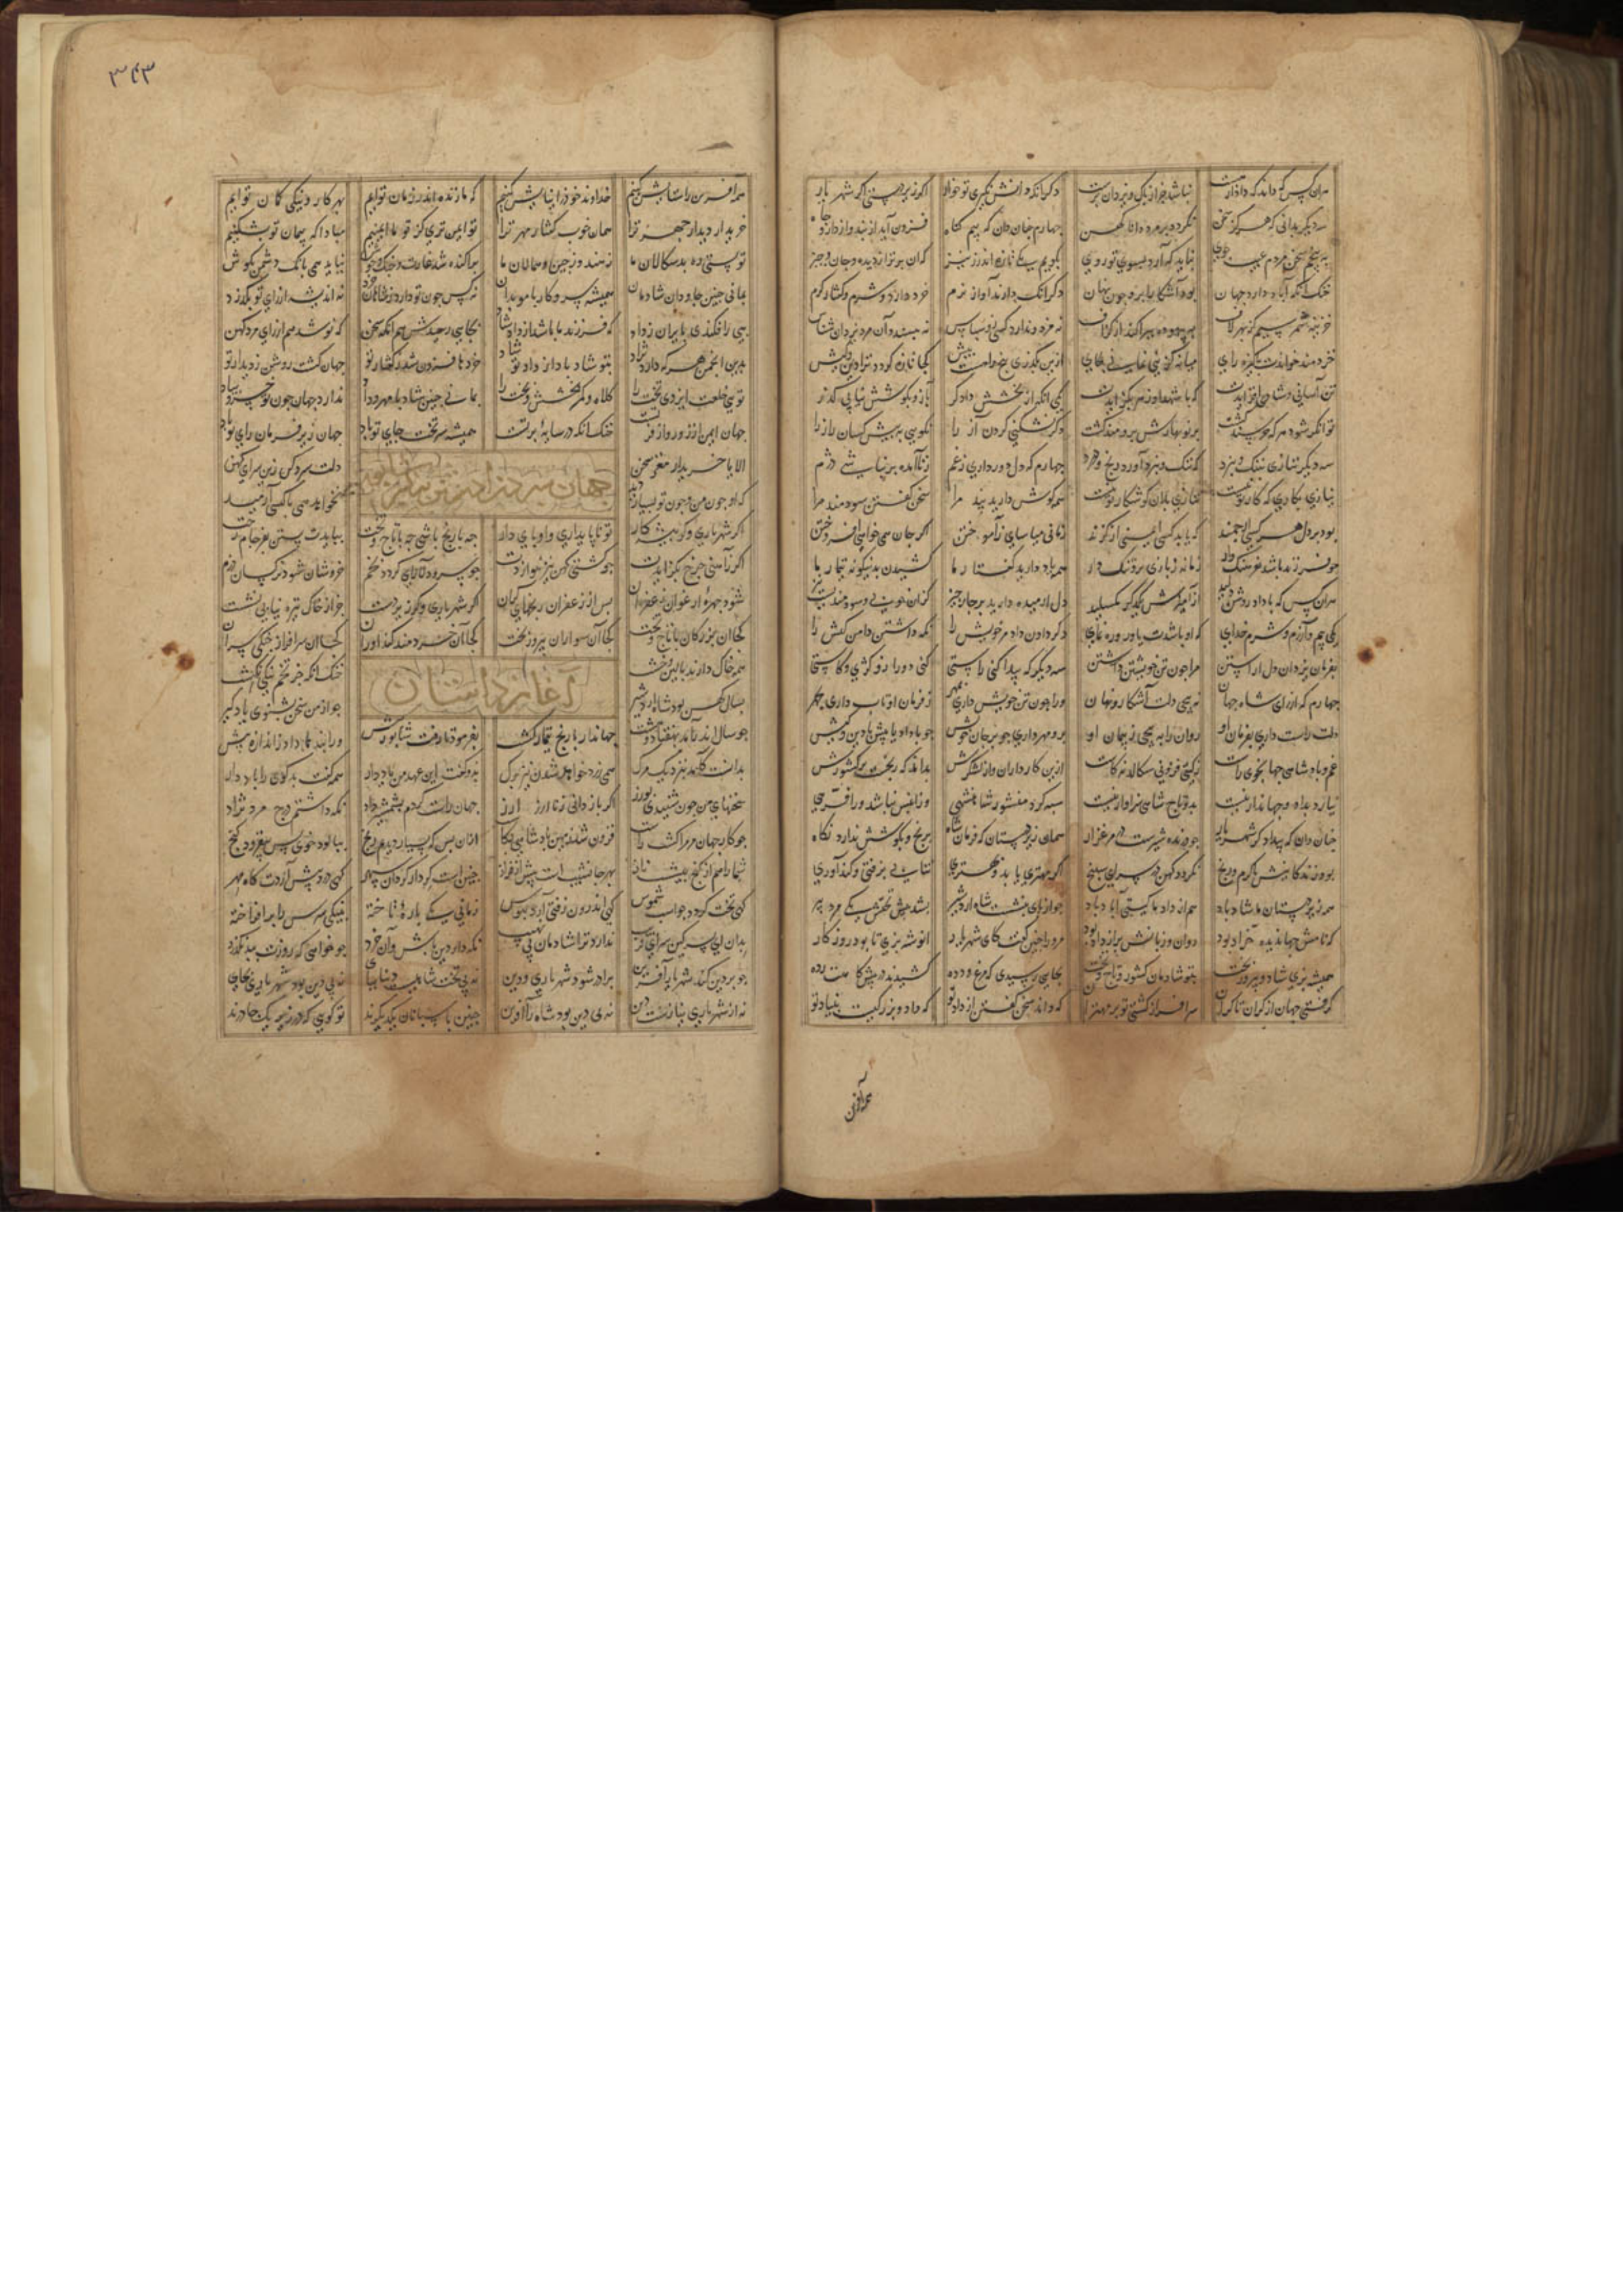 هران کس که داند که دادار هست نباشد جز از پاک و یزدان پرست دگر آنکه دانش نگیری تو خوار اگر زیردستی اگر شهریار
سه دیگر بدانی که هرگز سخن نگردد بر مرد دانا کهن چهارم چنان دان که بیم گناه فزون آید از بند و از دار و چاه
به پنجم سخن مردم عیب جوی نباید که آرد بسوی تو روی بگویم یکی تازه اندرز نیز کزان برتر از دیده و جان و چیز
خنک آنکه آباد دارد جهان بود آشکارا برو چون نهان دگر آنک دارند آواز نرم خرد دارد و شرم و گفتار گرم
خزینه شمر سیم کز بهر لاف به بیهوده بپراکند از گزاف نه مزد و ندارد کسی زو سپاس نه بپسندد آن مرد یزدان شناس
خردمند خواندت پاکیزه رای میانه گزینی بمانی بجای ازین بگذری پنج راهست پیش کجا تازه گردد ترا دین و کیش
تن آسانی و شادی افزایدت که با شهد او زهر نگزایدت یکی آنکه از بخشش دادگر به آز و بکوشش نیابی گذر
توانگر شود هر که خرسند گشت بر نوبهارش برومند گشت دگر بشکنی گردن آز را نگویی به پیش کسان راز را
سه دیگر ننازی بننگ و نبرد که ننگ و نبرد آورد رنج و درد چهارم که دل دور داری ز غم ز ناآمده بر نباشی دژم
نیازی بکاری که کار تو نیست سخن گفتن سودمند مرا همه گوش دارید پند مرا
بود بر دل هر کسی ارجمند که یابد کسی ایمنی از گزند زمانی میاسای ز آموختن اگر جان همی خواهی افروختن
چو فرزند باشد بفرهنگ دار زمانه ز بازی برو تنگ دار همه یاد دارید گفتار ما کشیدن بدینگونه تیمار ما
هران کس که با داد روشن دلید از آمیزش یکدگر مگسلید دل آرمیده دارید بر چار چیز کزان خوبی و سودمندیست نیز
یکی بیم و آزرم و شرم خدای که او باشدت یاور و رهنمای دگر دادن داد مر خویش را نگه داشتن دامن کیش را
بفرمان یزدان دل آراستن مرا چون تن خویشتن داشتن سه دیگر که پیدا کنی راستی کنی دور ازو کژی و کاستی
چهارم که از رای شاه جهان نپیچی دلت آشکار و نهان ورا چون تن خویش داری بمهر ز فرمان او تاب داری چهر
دلت راست داری بفرمان او روان را نپیچی ز پیمان او برو مهر داری چو بر جان خویش چو با داد یابیش با دین و کیش
غم پادشاهی جهانجوی راست ز گیتی فزونی سگالد نه کاست ازین کارداران و از لشکرش بداند که رنجست بر کشورش
نیازد بداد و جهاندار نیست بدو تاج شاهی سزاوار نیست سیه کرد منشور شاهنشهی و زان پس نباشد ورا فرهی
چنان دان که بیدادگر شهریار چو درنده شیرست در مرغزار همان زیردستان که فرمان شاه برنج و بکوشش ندارد نگاه
بود زندگانیش با گرم و رنج نگردد کهن در سرای سپنج اگر مهتری یابد و بهتری نتابد بزفتی و کندآوری
همه زیردستان ما شاد باد هم از داد ما گیتی آباد باد چو از رای بنشست شاه اردشیر بشد پیش تختش یکی مرد پیر
که نامش جهاندیده خراد بود روان و زبانش پر از داد بود مرو را چنین گفت کای شهریار انوشه بزی تا بود روزگار
همیشه بزی شاد و پیروزبخت بتو شادمان کشور و تاج و تخت بجایی رسیدی که مرغ و دده کشیدند پیش تو رده
گرفتی جهان از کران تا کران سرافراز گشتی تو بر مهتران که داند سخن گفتن از داد تو که داد و بزرگیست بنیاد تو
همه آفرین
۳۴۳
همه آفرین را ستایش کنیم خداوند خود را نیایش کنیم که ما زنده اندر زمان توایم بهر کار و نیکی گمان توایم
خریدار دیدار چهر ترا همان خوب گفتار مهر ترا تو ایمن بزی کز تو ما ایمنیم مبادا که پیمان تو بشکنیم
تو بستی ره بدسگالان ما ز هند و ز چین و همالان ما پراکنده شد غارت و جنگ و جوش نیاید همی بانگ دشمن بگوش
بمانی چنین جاودان شادمان همیشه سر و کار با موبدان نه کس چون تو دارد ز شاهان خرد نه اندیشه از رای تو بگذرد
پی افکندی بایران ز داد که فرزند ما باشد از داد شاد بجایی رسیدی هم اندر سخن که نو شد هم از رای مرد کهن
بدین انجمن هر که دارد نژاد بتو شاد بادا از داد تو شاد خردها فزون شد ز گفتار تو جهان گشت روشن ز دیدار تو
تویی خلعت ایزدی بخت را کلاه و کمر بخشش و تخت را بمانی چنین شاد با مهر و داد ندارد جهان چون تو خسرو بیاد
جهان ایمن از زور و از فر تست خنک آنکه در سایه پر تست همیشه سر تخت جای تو باد جهان زیر فرمان و رای تو باد
الا یا خریدار مغز سخن دلت برگسل زین سرای کهن
که او چون من و چون تو بسیار دید نخواهد همی با کسی آرمید
اگر شهریاری و گر پیشکار تو ناپایداری و او پایدار چه با رنج باشی چه با تاج و تخت ببایدت بستن بفرجام رخت
اگر ز آهنی چرخ بگدازدت چو گشتی کهن نیز ننوازدت چو سرو دلارای گردد بخم خروشان شود نرگسان دژم
شود چهره ارغوان زعفران پس از زعفران رنجهای گران اگر شهریاری و گر زیردست جز از خاک تیره نیابی نشست
کجا آن بزرگان با تاج و تخت کجا آن سواران پیروزبخت کجا آن خردمند کندآوران کجا آن سرافراز جنگی سران
همه خاک دارند بالین و خشت خنک آنکه جز تخم نیکی نکشت
آغاز داستان
بسال کهن بود شاه اردشیر چو از من سخن بشنوی یاد گیر
چو سال اندر آمد بهفتاد و هشت جهاندار با رنج بیمار گشت بفرمود تا رفت شاپور پیش ورا پند ها داد ز اندازه بیش
بدانست کآمد بنزدیک مرگ همی زرد خواهد شدن نیز برگ بدو گفت این عهد من یاد دار همه گفت بدگوی را باد دار
سخنهای من چون شنیدی بورز اگر بازدانی ز ناارز ارز جهان راست کردم بشمشیر داد نگه داشتم ارج مرد نژاد
چو کار جهان مر مرا گشت راست فزون شد زمین پادشاهی بکاست ازان پس که بسیار دیدم رنج بپالود خوی پس بیفزود گنج
شما را هم از گنج پیشست ناز بهر جا نشیبست پیش از فراز چنین است کردار گردان سپهر گهی درد پیش آردت گاه مهر
گهی بخت گردد چو اسب شموس گهی اندرون زفتی آرد فسوس زمانی یکی باره آخته بنیکی سرش را برافراخته
بدان ای پسر کین سرای فریب ندارد ترا شادمان بی نهیب نگه دار دین باش و آن خرد چو خواهی که روزت ببد نگذرد
چو بر دین کند شهریار آفرین برادر شود شهریاری و دین نه بی تخت شاهیست دینی بپای نه بی دین بود شهریاری بجای
نه از شهریاری نیازست دین نه بی دین بود شاه را آفرین چنین پاسبانان یکدیگرند تو گویی که در زیر یک چادرند